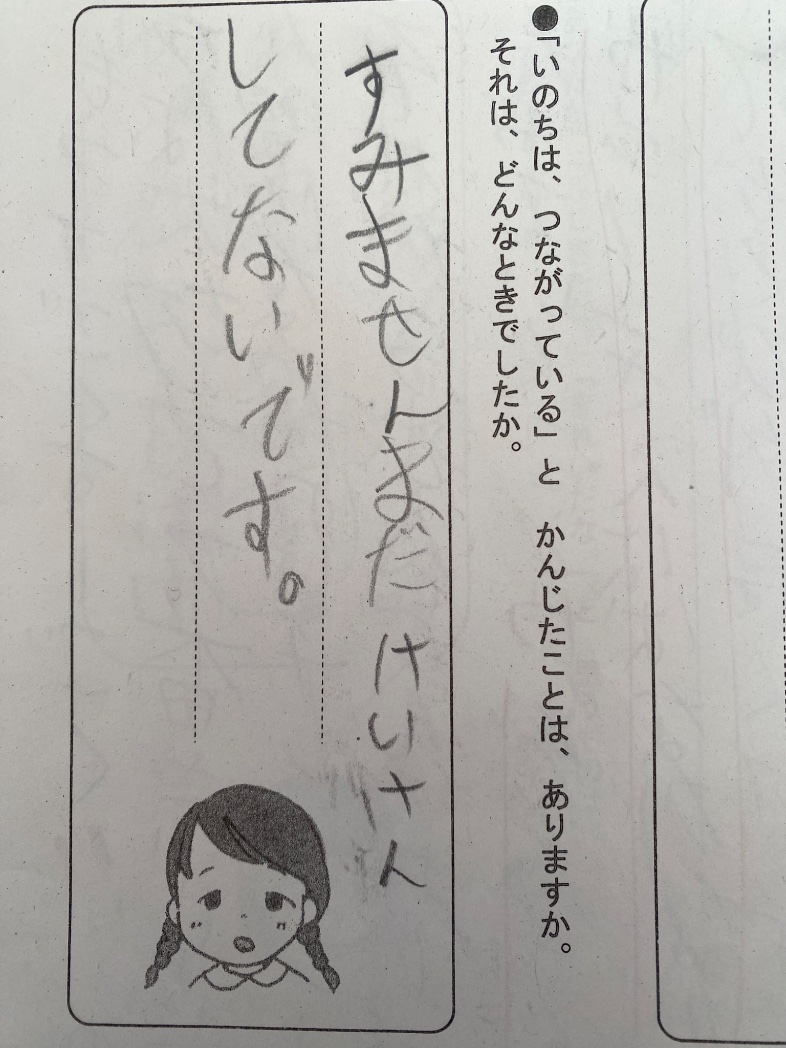 ●「いのちは、つながっている」と かんじたことは、ありますか。
それは、どんなときでしたか。
すみませんまだけいけん
してないです。